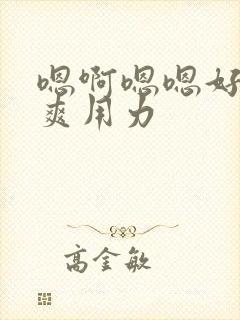 嗯啊嗯嗯好
爽用力
高金敏